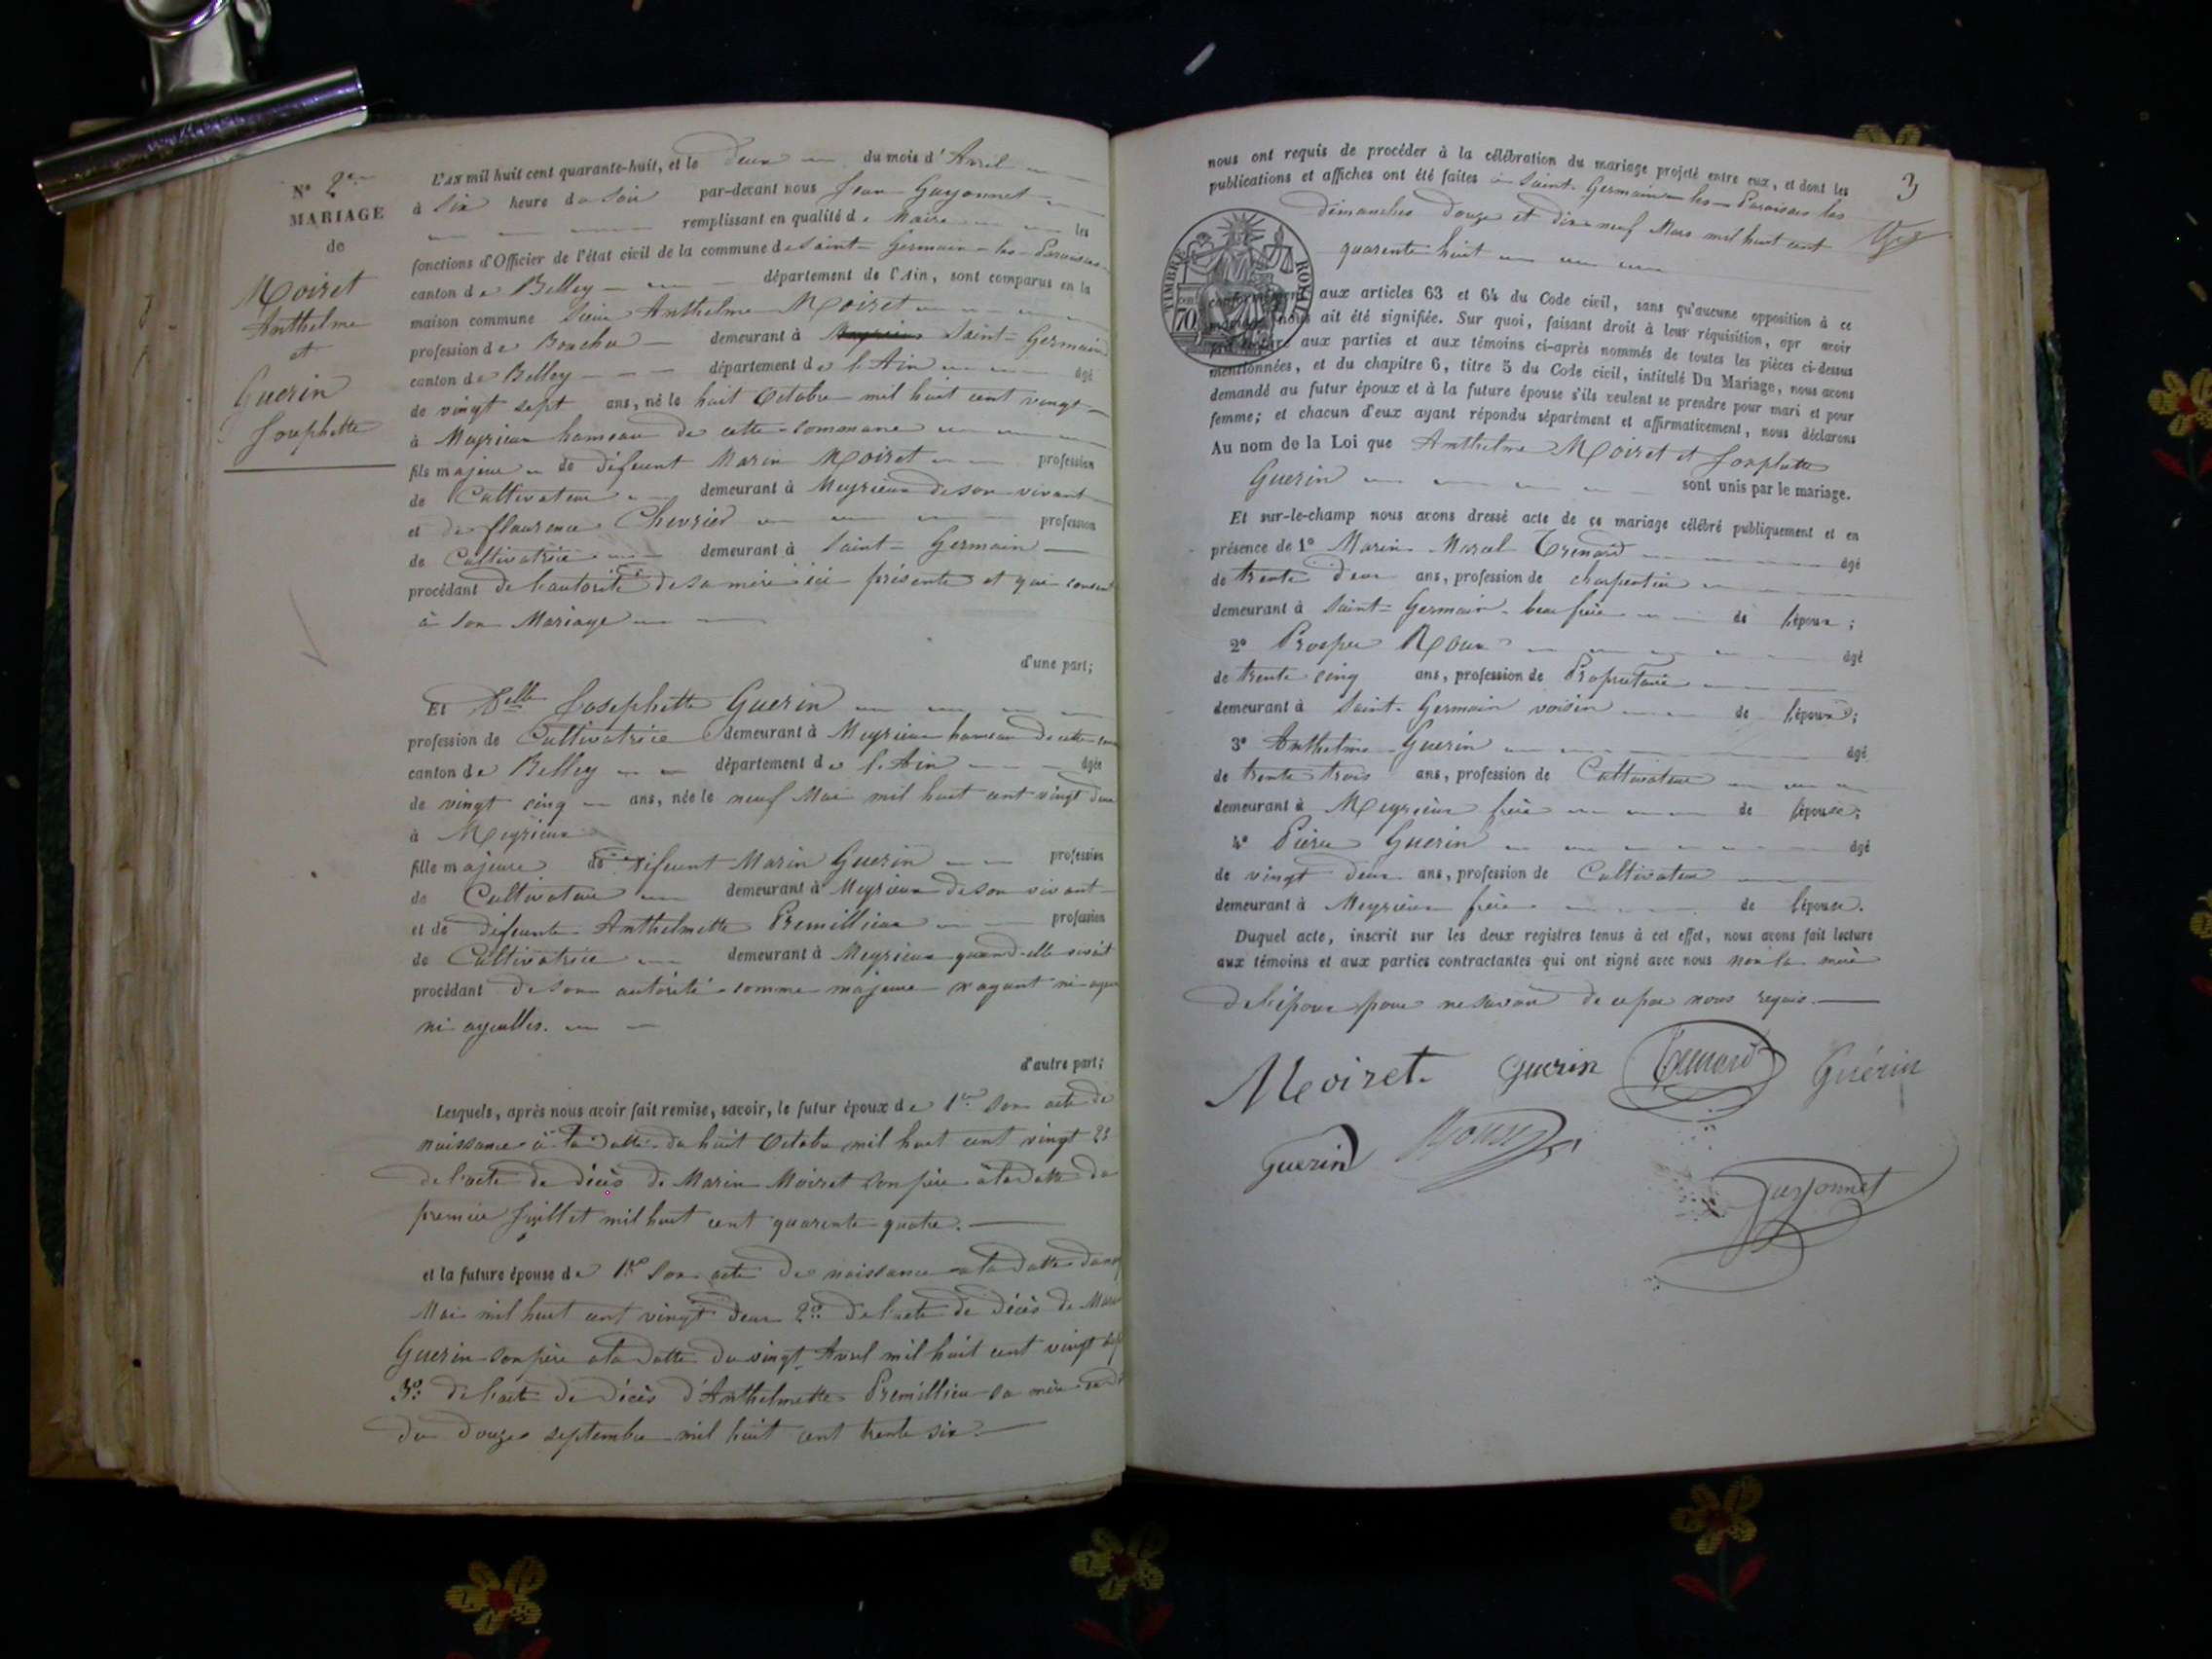 N° 2
MARIAGE
de
Moiret
Anthelme
et
Guerin
Josephette
L'AN mil huit cent quarante-huit, et le deux du mois d'Avril
à Six heure du Soir par-devant nous Jean Guyonnet
remplissant en qualité de Maire les
fonctions d'Officier de l'état civil de la commune de Saint-Germain-les-Paroisses
canton de Belley département de l'Ain, sont comparus en la
maison commune Sieur Anthelme Moiret
profession de demeurant à Saint-Germain
canton de Belley département de l'Ain âgé
de vingt sept ans, né le huit Octobre mil huit cent vingt
à Meyrieux hameau de cette commune
fils majeur de défeunt Marin Moiret profession
de Cultivateur demeurant à Meyrieux de son vivant
et de flaurence Chevrier profession
de Cultivatrice demeurant à Saint-Germain
procédant de l'autorité de sa mère ici présente et qui consent
à son Mariage
d'une part;
Et Delle Josephette Guerin
profession de Cultivatrice demeurant à Meyrieux hameau de cette
canton de Belley département de l'Ain âgée
de vingt cinq ans, née le neuf Mai mil huit cent vingt deux
à Meyrieux
fille majeure de défeunt Marin Guerin profession
de Cultivateur demeurant à Meyrieux de son vivant
et de défeunte Anthelmette Premillieu profession
de Cultivatrice demeurant à Meyrieux quand elle vivait
procédant de son autorité comme majeure n'ayant ni
ni ayeulles.
d'autre part;
Lesquels, après nous avoir fait remise, savoir, le futur époux de 1° son acte de
naissance à la datte du huit Octobre mil huit cent vingt 2°
de l'acte de décès de Marin Moiret son père à la datte du
premier Juillet mil huit cent quarente quatre.
et la future épouse de 1° son acte de naissance a la datte du
Mai mil huit cent vingt deux 2° de l'acte de décès de
Guerin son père a la datte du vingt Avril mil huit cent vingt
3° de l'acte de décès d'Anthelmette Premillieu sa mère
du douze septembre mil huit cent trente six.
3
nous ont requis de procéder à la célébration du mariage projeté entre eux, et dont les
publications et affiches ont été faites à Saint-Germain-les-Paroisses les
dimanches douze et dix neuf Mars mil huit cent
quarente huit
TIMBRE ROYAL
70
conformément aux articles 63 et 64 du Code civil, sans qu'aucune opposition à ce
mariage nous ait été signifiée. Sur quoi, faisant droit à leur réquisition, apr avoir
aux parties et aux témoins ci-après nommés de toutes les pièces ci-dessus
mentionnées, et du chapitre 6, titre 5 du Code civil, intitulé Du Mariage, nous avons
demandé au futur époux et à la future épouse s'ils veulent se prendre pour mari et pour
femme; et chacun d'eux ayant répondu séparément et affirmativement, nous déclarons
Au nom de la Loi que Anthelme Moiret et Josephette
Guerin sont unis par le mariage.
Et sur-le-champ nous avons dressé acte de ce mariage célébré publiquement et en
présence de 1° Marin Marcel Trenard âgé
de trente deux ans, profession de charpentier
demeurant à Saint-Germain beau frère de l'époux;
2° Prosper Roux âgé
de trente cinq ans, profession de Propriétaire
demeurant à Saint-Germain voisin de l'époux;
3° Anthelme Guerin âgé
de trente trois ans, profession de Cultivateur
demeurant à Meyrieux frère de l'épouse;
4° Pierre Guerin âgé
de vingt deux ans, profession de Cultivateur
demeurant à Meyrieux frère de l'épouse.
Duquel acte, inscrit sur les deux registres tenus à cet effet, nous avons fait lecture
aux témoins et aux parties contractantes qui ont signé avec nous non la mère
de l'époux pour ne savoir de ce par nous requis.
Moiret. Guerin Trenard Guérin
Guerin Roux
Guyonnet